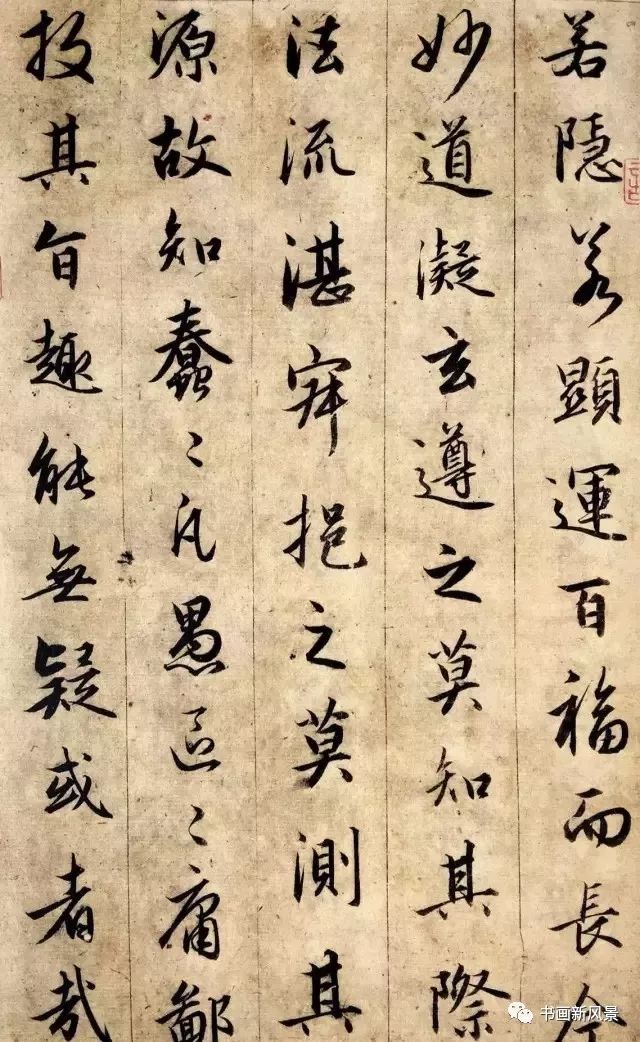 若隱若顯運百福而長今
妙道凝玄遵之莫知其際
法流湛寂挹之莫測其
源故知蠢〻凡愚區〻庸鄙
投其旨趣能無疑或者哉
书画新风景